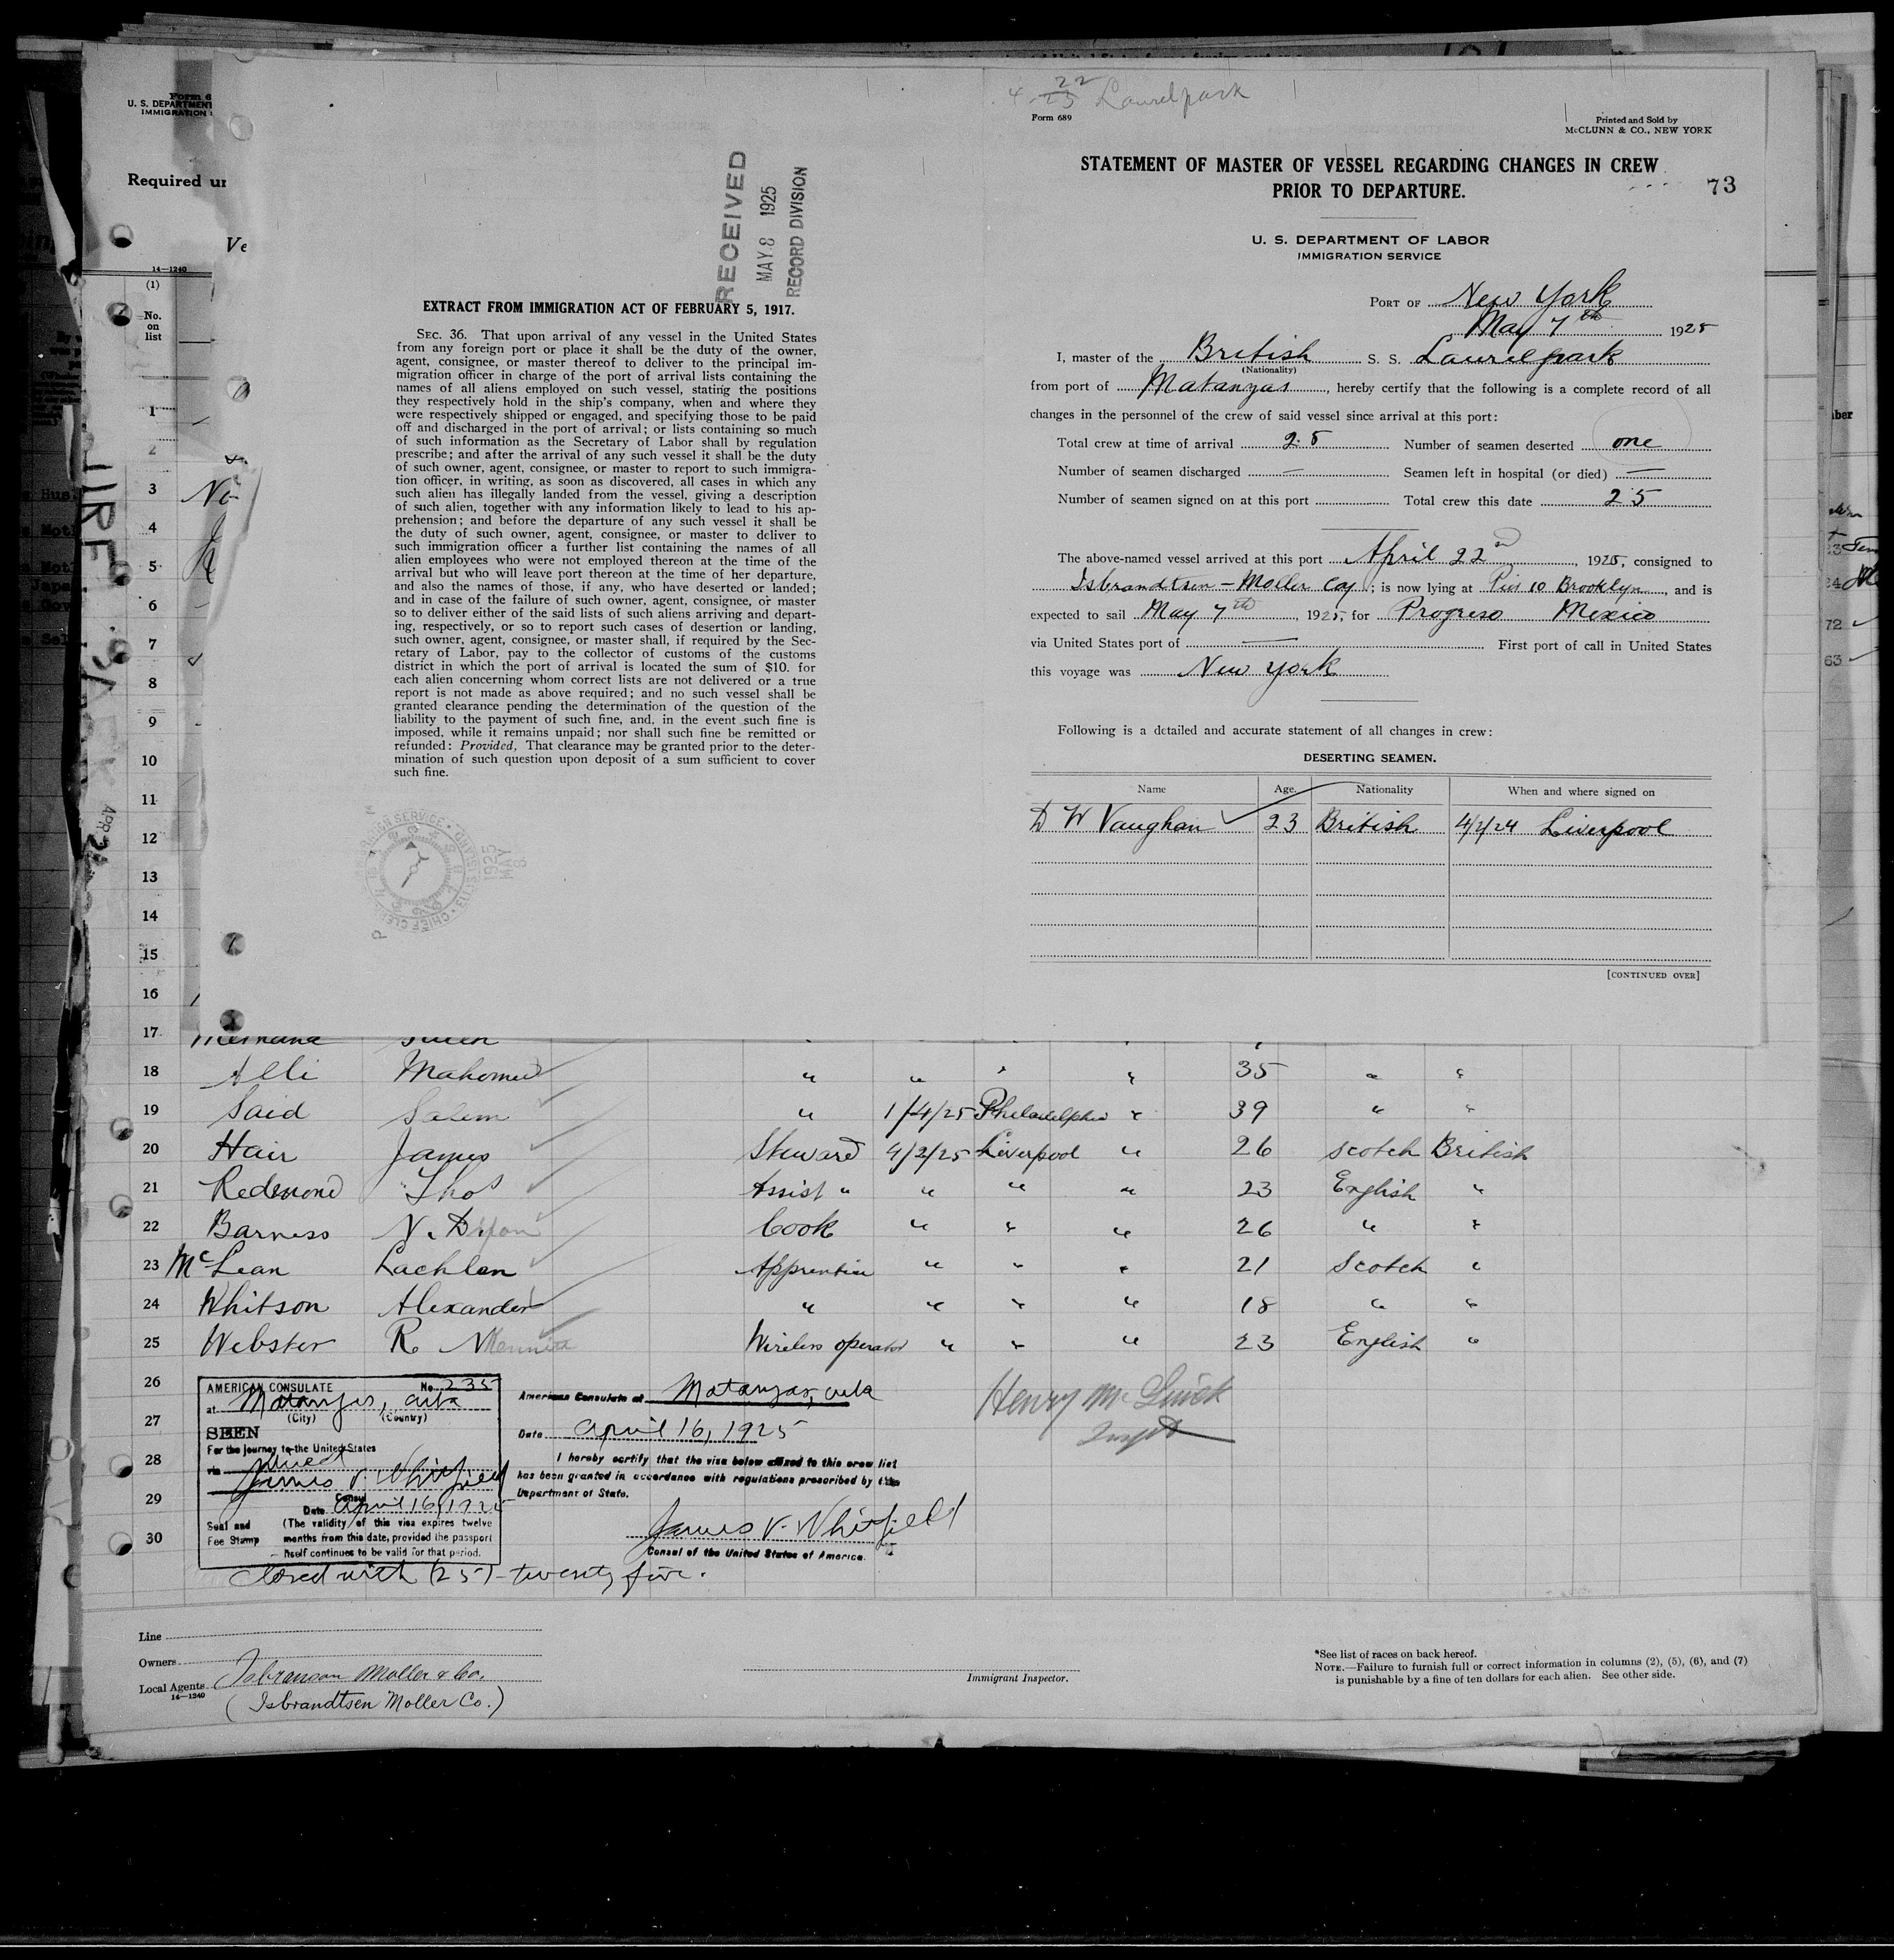 Form 6
U. S. DEPARTMENT
IMMIGRATION
Required ur
Ve
14—1240
(1)
No.
on
list
RECEIVED
MAY 8 1925
RECORD DIVISION
EXTRACT FROM IMMIGRATION ACT OF FEBRUARY 5, 1917.
SEC. 36. That upon arrival of any vessel in the United States
from any foreign port or place it shall be the duty of the owner,
agent, consignee, or master thereof to deliver to the principal im-
migration officer in charge of the port of arrival lists containing the
names of all aliens employed on such vessel, stating the positions
they respectively hold in the ship's company, when and where they
were respectively shipped or engaged, and specifying those to be paid
off and discharged in the port of arrival; or lists containing so much
of such information as the Secretary of Labor shall by regulation
prescribe; and after the arrival of any such vessel it shall be the duty
of such owner, agent, consignee, or master to report to such immigra-
tion officer, in writing, as soon as discovered, all cases in which any
such alien has illegally landed from the vessel, giving a description
of such alien, together with any information likely to lead to his ap-
prehension; and before the departure of any such vessel it shall be
the duty of such owner, agent, consignee, or master to deliver to
such immigration officer a further list containing the names of all
alien employees who were not employed thereon at the time of the
arrival but who will leave port thereon at the time of her departure,
and also the names of those, if any, who have deserted or landed;
and in case of the failure of such owner, agent, consignee, or master
so to deliver either of the said lists of such aliens arriving and depart-
ing, respectively, or so to report such cases of desertion or landing,
such owner, agent, consignee, or master shall, if required by the Sec-
retary of Labor, pay to the collector of customs of the customs
district in which the port of arrival is located the sum of $10. for
each alien concerning whom correct lists are not delivered or a true
report is not made as above required; and no such vessel shall be
granted clearance pending the determination of the question of the
liability to the payment of such fine, and, in the event such fine is
imposed, while it remains unpaid; nor shall such fine be remitted or
refunded: Provided, That clearance may be granted prior to the deter-
mination of such question upon deposit of a sum sufficient to cover
such fine.
1925
MAY
8
4-23 22 Laurelpark
Form 689
Printed and Sold by
McCLUNN & CO., NEW YORK
STATEMENT OF MASTER OF VESSEL REGARDING CHANGES IN CREW
PRIOR TO DEPARTURE.
73
U. S. DEPARTMENT OF LABOR
IMMIGRATION SERVICE
PORT OF New York
May 7th 1925
I, master of the British S. S. Laurelpark
(Nationality)
from port of Matanzas, hereby certify that the following is a complete record of all
changes in the personnel of the crew of said vessel since arrival at this port:
Total crew at time of arrival 25 Number of seamen deserted one
Number of seamen discharged — Seamen left in hospital (or died) —
Number of seamen signed on at this port Total crew this date 25
The above-named vessel arrived at this port April 22nd, 1925, consigned to
Isbrandtsen - Moller Coy; is now lying at Pier 10 Brooklyn, and is
expected to sail May 7th, 1925, for Progreso Mexico
via United States port of — First port of call in United States
this voyage was New York
Following is a detailed and accurate statement of all changes in crew:
DESERTING SEAMEN.
Name Age. Nationality When and where signed on
D W Vaughan 23 British 4/2/24 Liverpool
[CONTINUED OVER]
1
2
3 No
4
5
6
7
8
9
10
11
12
13
14
15
16
17
18 Alli Mahomed " " " " 35 " "
19 Said Salem " 1/4/25 Philadelphia " 39 " "
20 Hair James Steward 4/2/25 Liverpool " 26 Scotch British
21 Redmond Thos Assist " " " " 23 English "
22 Barness N. Cook " " " 26 " "
23 McLean Lachlan Apprentice " " " 21 Scotch "
24 Whitson Alexander " " " " 18 " "
25 Webster R. Wireless operator " " " 23 English "
26
27
28
29
30
AMERICAN CONSULATE No. 235
at Matanzas, Cuba
(City) (Country)
SEEN
For the journey to the United States
via Direct
James V. Whitfield
Consul
Date April 16, 1925
Seal and Fee Stamp
(The validity of this visa expires twelve
months from this date, provided the passport
itself continues to be valid for that period.
American Consulate at Matanzas, Cuba
Date April 16, 1925
I hereby certify that the visa below affixed to this crew list
has been granted in accordance with regulations prescribed by the
Department of State.
James V. Whitfield
Consul of the United States of America.
Closed with (25) - twenty five.
Line
Owners
Local Agents Isbranson Moller & Co.
14—1240
(Isbrandtsen Moller Co.)
Immigrant Inspector.
*See list of races on back hereof.
NOTE.—Failure to furnish full or correct information in columns (2), (5), (6), and (7)
is punishable by a fine of ten dollars for each alien. See other side.